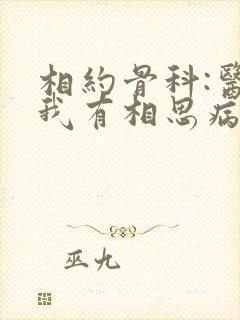 相約骨科:醫
我有相思病
巫九